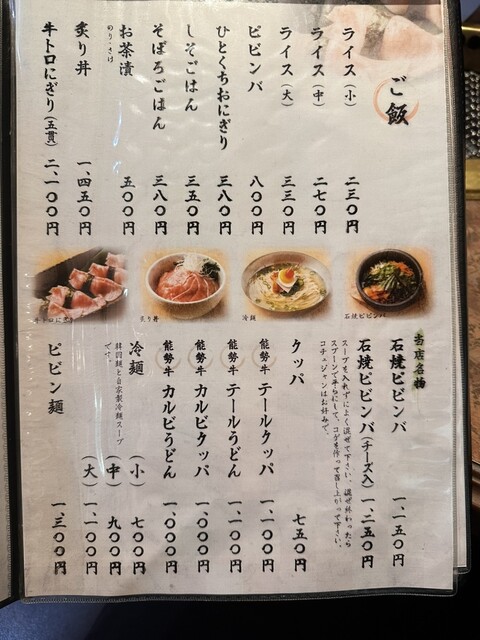 ご飯
ライス（小） 二三〇円
ライス（中） 二七〇円
ライス（大） 三三〇円
ビビンバ 八〇〇円
ひとくちおにぎり 三八〇円
しそごはん 三五〇円
そぼろごはん 三八〇円
お茶漬 五〇〇円
のり・さけ
炙り丼 一、四五〇円
牛トロにぎり（五貫） 二、一〇〇円
石焼ビビンバ
冷麺
炙り丼
牛トロにぎり
当店名物
石焼ビビンバ 一、一五〇円
石焼ビビンバ（チーズ入） 一、二五〇円
スープを入れずによく混ぜて下さい。混ぜ終わったら
スプーンで平らにして、コゲを作って召し上がって下さい。
コチュジャンはお好みで。
クッパ 七五〇円
能勢牛 テールクッパ 一、一〇〇円
能勢牛 テールうどん 一、一〇〇円
能勢牛 カルビクッパ 一、〇〇〇円
能勢牛 カルビうどん 一、〇〇〇円
冷麺 （小） 七〇〇円
韓国麺と自家製冷麺スープ
です。
（中） 九〇〇円
（大） 一、一〇〇円
ビビン麺 一、三〇〇円